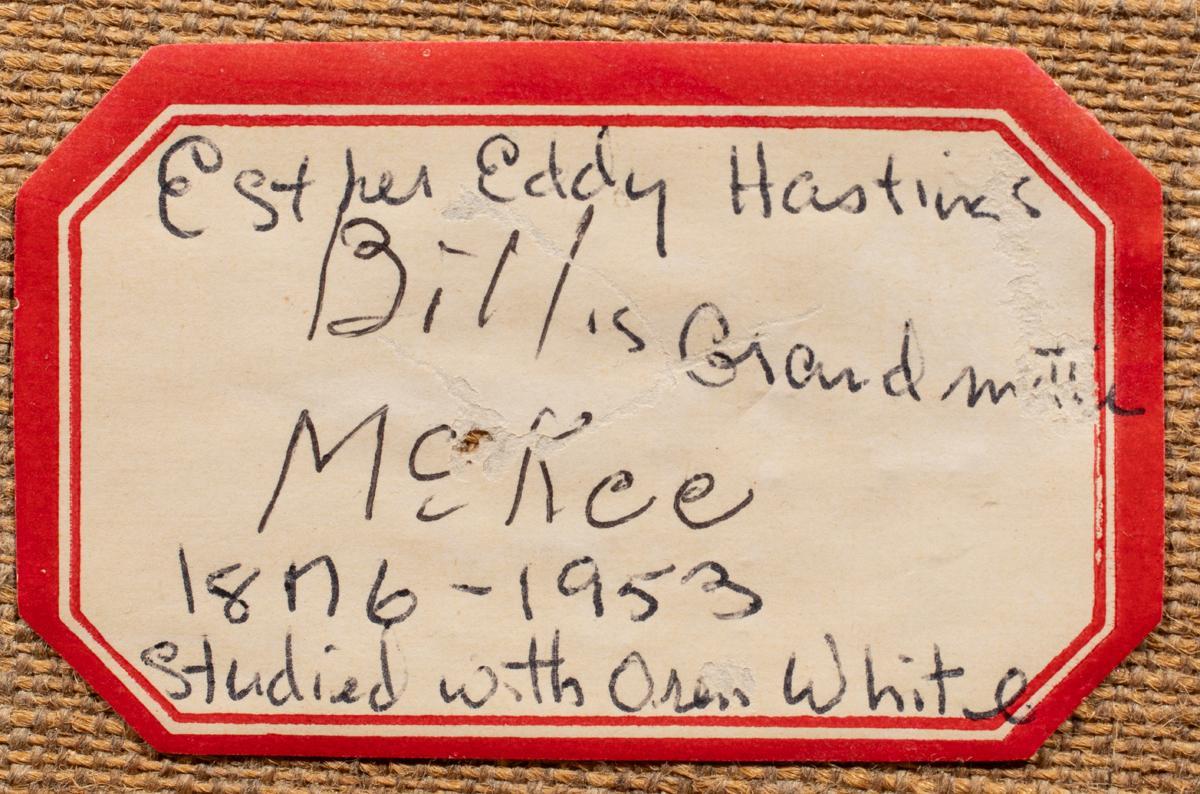 Esther Eddy Hastings
Bill is Grandmothe
McKee
1876-1953
Studied with Oren White